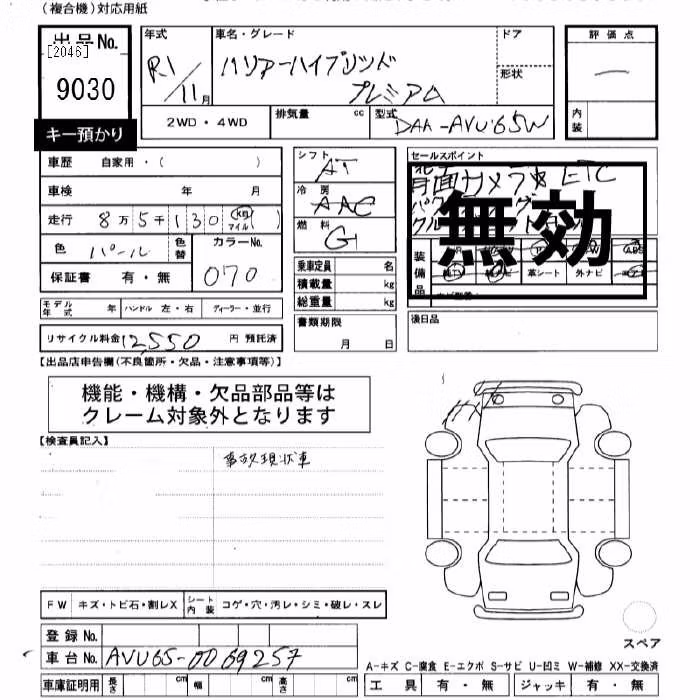 (複合機)対応用紙
出品No.
[2046]
9030
キー預かり
年式
R1/11月
車名・グレード
ハリアーハイブリッド
プレミアム
ドア
形状
評価点
内装
2WD・4WD
排気量 cc
型式
DAA-AVU65W
車歴 自家用・( )
車検 年 月
走行 8万5千130 km マイル ( )
色 パール
色替
カラーNo.
070
保証書 有・無
モデル年式 年
ハンドル 左・右
ディーラー・並行
リサイクル料金 12,550 円 預託済
シフト AT
冷房 AAC
燃料 G
乗車定員 名
積載量 kg
総重量 kg
書類期限
月 日
セールスポイント
背面カメラ ETC
無効
装備品
革シート 外ナビ
後日品
【出品店申告欄(不良箇所・欠品・注意事項等)】
機能・機構・欠品部品等は
クレーム対象外となります
【検査員記入】
事故現状車
FW キズ・トビ石・割レX
シート内装 コゲ・穴・汚レ・シミ・破レ・スレ
登録No.
車台No. AVU65-0069257
車庫証明用 長さ cm 幅 cm 高さ cm
スペア
A-キズ C-腐食 E-エクボ S-サビ U-凹ミ W-補修 XX-交換済
工具 有・無 ジャッキ 有・無